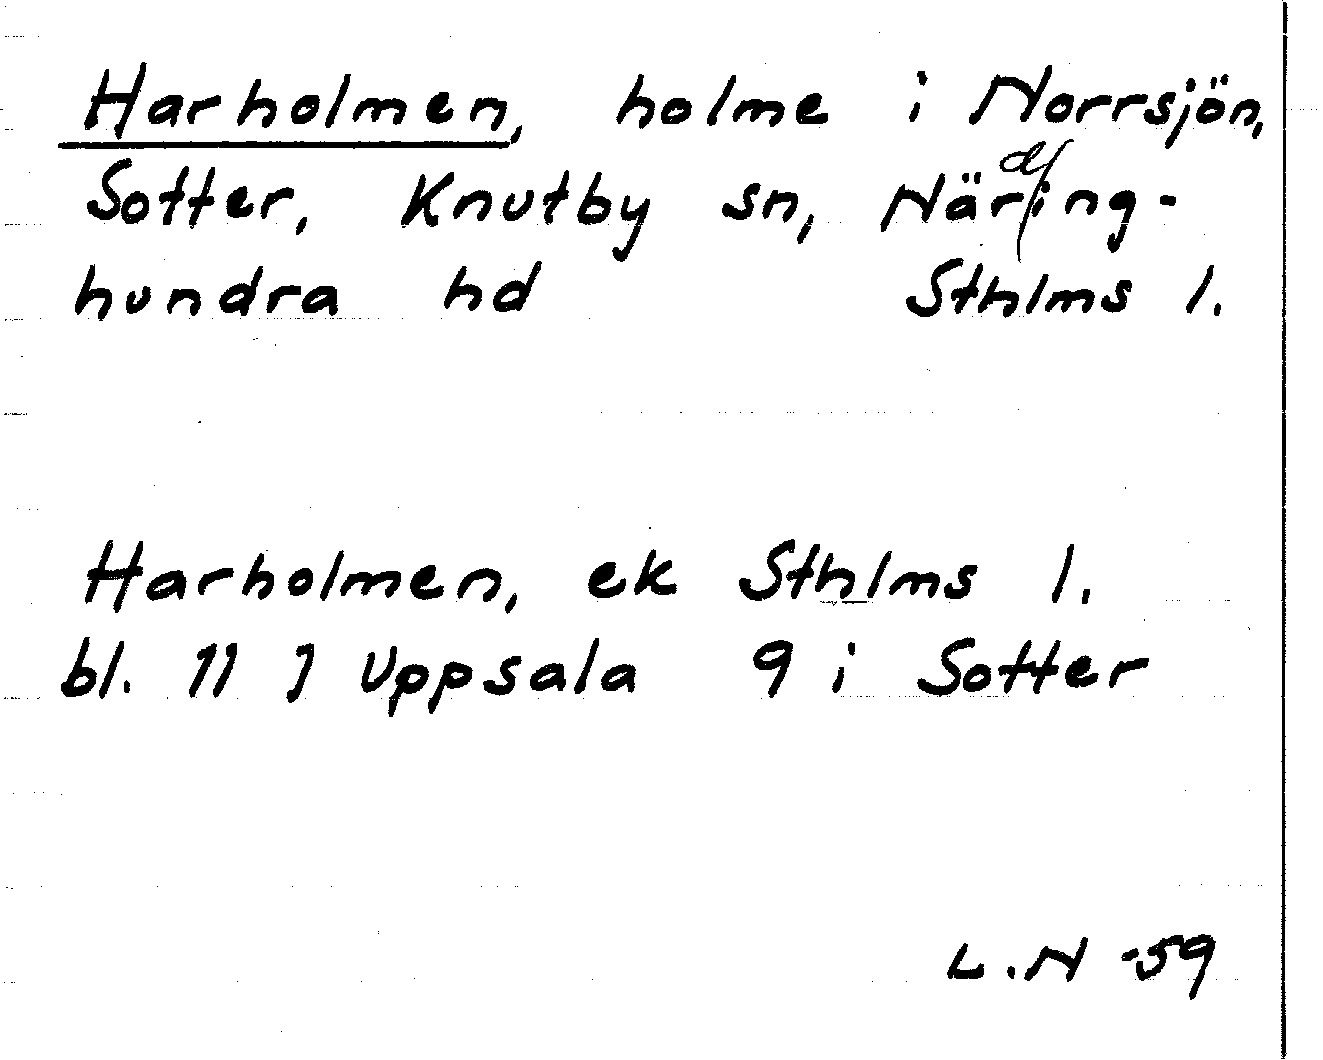 Harholmen, holme i Norrsjön,
Sotter, Knutby sn, Närding-
hundra hd Sthlms l.
Harholmen, ek Sthlms l.
bl. 11 I Uppsala 9 i Sotter
L.N -59